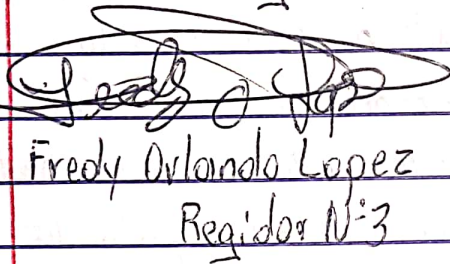 Fredy O Lopez
Fredy Orlando Lopez
Regidor N:3